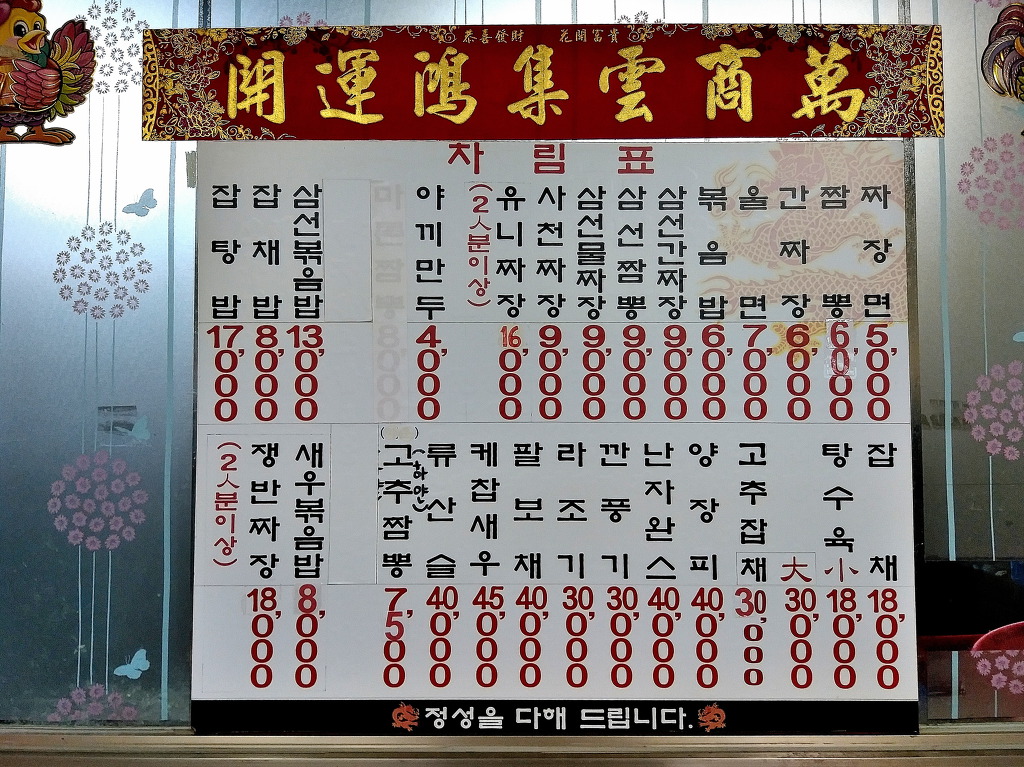 恭喜發財 花開富貴
開運鴻集雲商萬
차림표
짜장면 5,000
짬뽕 6,000
간짜장 6,000
울면 7,000
볶음밥 6,000
삼선간짜장 9,000
삼선짬뽕 9,000
삼선물짜장 9,000
사천짜장 9,000
유니짜장 (2人분이상) 16,000
야끼만두 4,000
삼선볶음밥 13,000
잡채밥 8,000
잡탕밥 17,000
잡채 18,000
탕수육 小 18,000
大 30,000
고추잡채 30,000
양장피 40,000
난자완스 40,000
깐풍기 30,000
라조기 30,000
팔보채 40,000
케찹새우 45,000
류산슬 40,000
고추짬뽕 (하얀) 7,500
새우볶음밥 8,000
쟁반짜장 (2人분이상) 18,000
정성을 다해 드립니다.